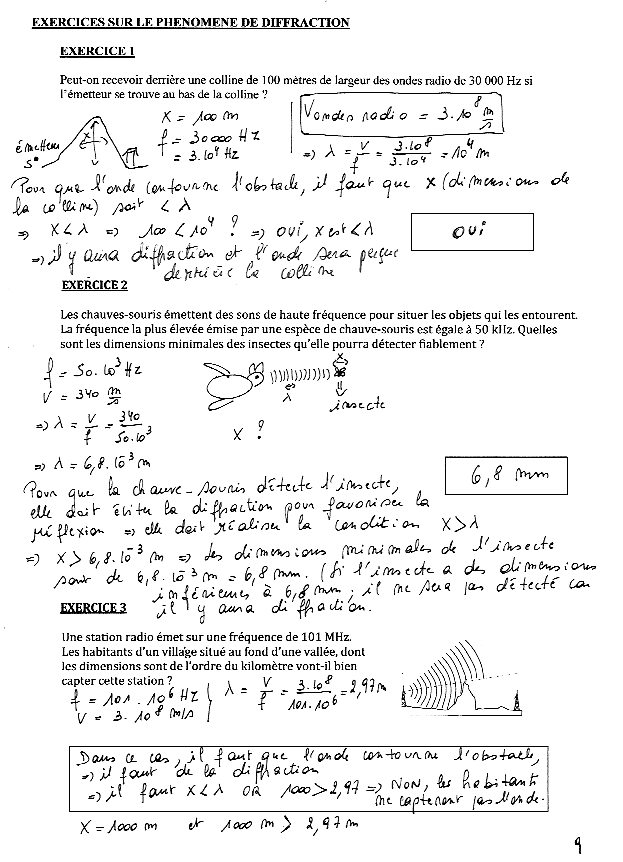 EXERCICES SUR LE PHENOMENE DE DIFFRACTION
EXERCICE 1
Peut-on recevoir derrière une colline de 100 mètres de largeur des ondes radio de 30 000 Hz si
l'émetteur se trouve au bas de la colline ?
émetteur
X = 100 m
f = 30000 Hz
= 3.10⁴ Hz
Vondes radio = 3.10⁸ m/s
=> λ = V/f = 3.10⁸/3.10⁴ = 10⁴ m
Pour que l'onde contourne l'obstacle, il faut que X (dimensions de
la colline) soit < λ
=> X < λ => 100 < 10⁴ ? => OUI, X est < λ
=> il y aura diffraction et l'onde sera perçue
derrière la colline
OUI
EXERCICE 2
Les chauves-souris émettent des sons de haute fréquence pour situer les objets qui les entourent.
La fréquence la plus élevée émise par une espèce de chauve-souris est égale à 50 kHz. Quelles
sont les dimensions minimales des insectes qu'elle pourra détecter fiablement ?
f = 50.10³ Hz
V = 340 m/s
=> λ = V/f = 340/50.10³
=> λ = 6,8.10⁻³ m
X
λ
insecte
X ?
6,8 mm
Pour que la chauve-souris détecte l'insecte,
elle doit éviter la diffraction pour favoriser la
réflexion => elle doit réaliser la condition X > λ
=> X > 6,8.10⁻³ m => les dimensions minimales de l'insecte
sont de 6,8.10⁻³ m = 6,8 mm. (Si l'insecte a des dimensions
inférieures à 6,8 mm, il ne sera pas détecté car
il y aura diffraction.
EXERCICE 3
Une station radio émet sur une fréquence de 101 MHz.
Les habitants d'un village situé au fond d'une vallée, dont
les dimensions sont de l'ordre du kilomètre vont-il bien
capter cette station ?
f = 101.10⁶ Hz
V = 3.10⁸ m/s
λ = V/f = 3.10⁸/101.10⁶ = 2,97 m
Dans ce cas, il faut que l'onde contourne l'obstacle,
=> il faut de la diffraction
=> il faut X < λ OR 1000 > 2,97 => NON, les habitants
ne capteront pas l'onde.
X = 1000 m et 1000 m > 2,97 m
9